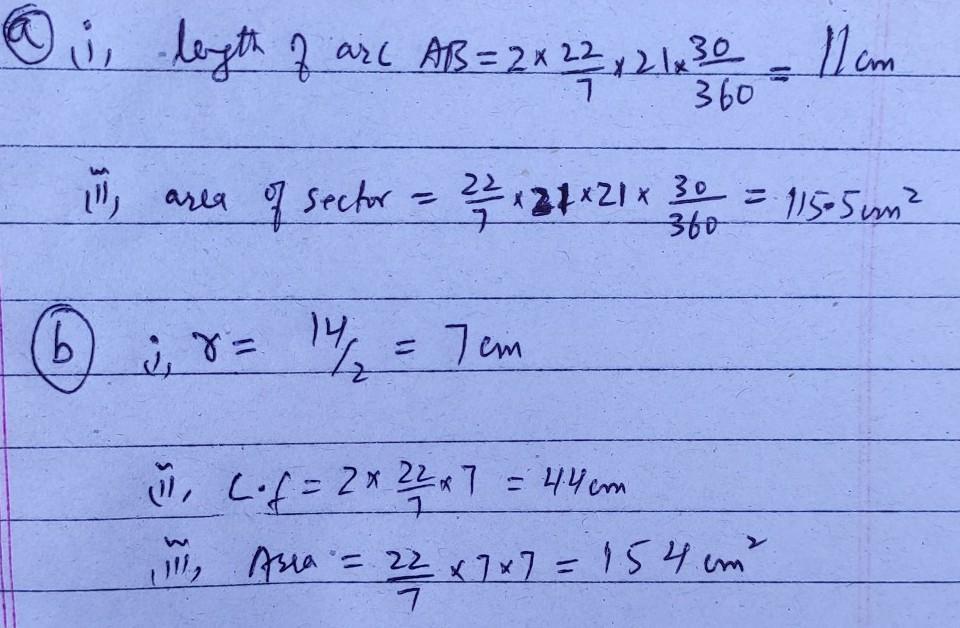 (a) i, length of arc AB = 2 × 22/7 × 21 × 30/360 = 11 cm
ii, area of sector = 22/7 × 21 × 21 × 30/360 = 115.5 cm²
(b) i, r = 14/2 = 7 cm
ii, C.f = 2 × 22/7 × 7 = 44 cm
iii, Area = 22/7 × 7 × 7 = 154 cm²